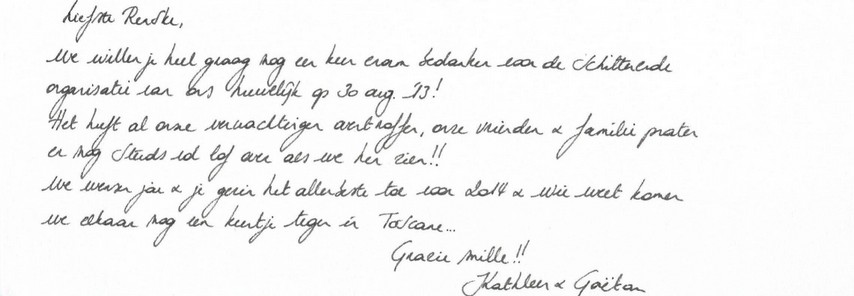 Liefste Renske,
We willen je heel graag nog een keer enorm bedanken voor de schitterende
organisatie van ons huwelijk op 30 aug. '13!
Het heeft al onze verwachtingen overtroffen, onze vrienden & familie praten
er nog steeds vol lof over als we hen zien!!
We wensen jou & je gezin het allerbeste toe voor 2014 & wie weet komen
we elkaar nog een keertje tegen in Toscane...
Grazie mille!!
Kathleen & Gaëtan